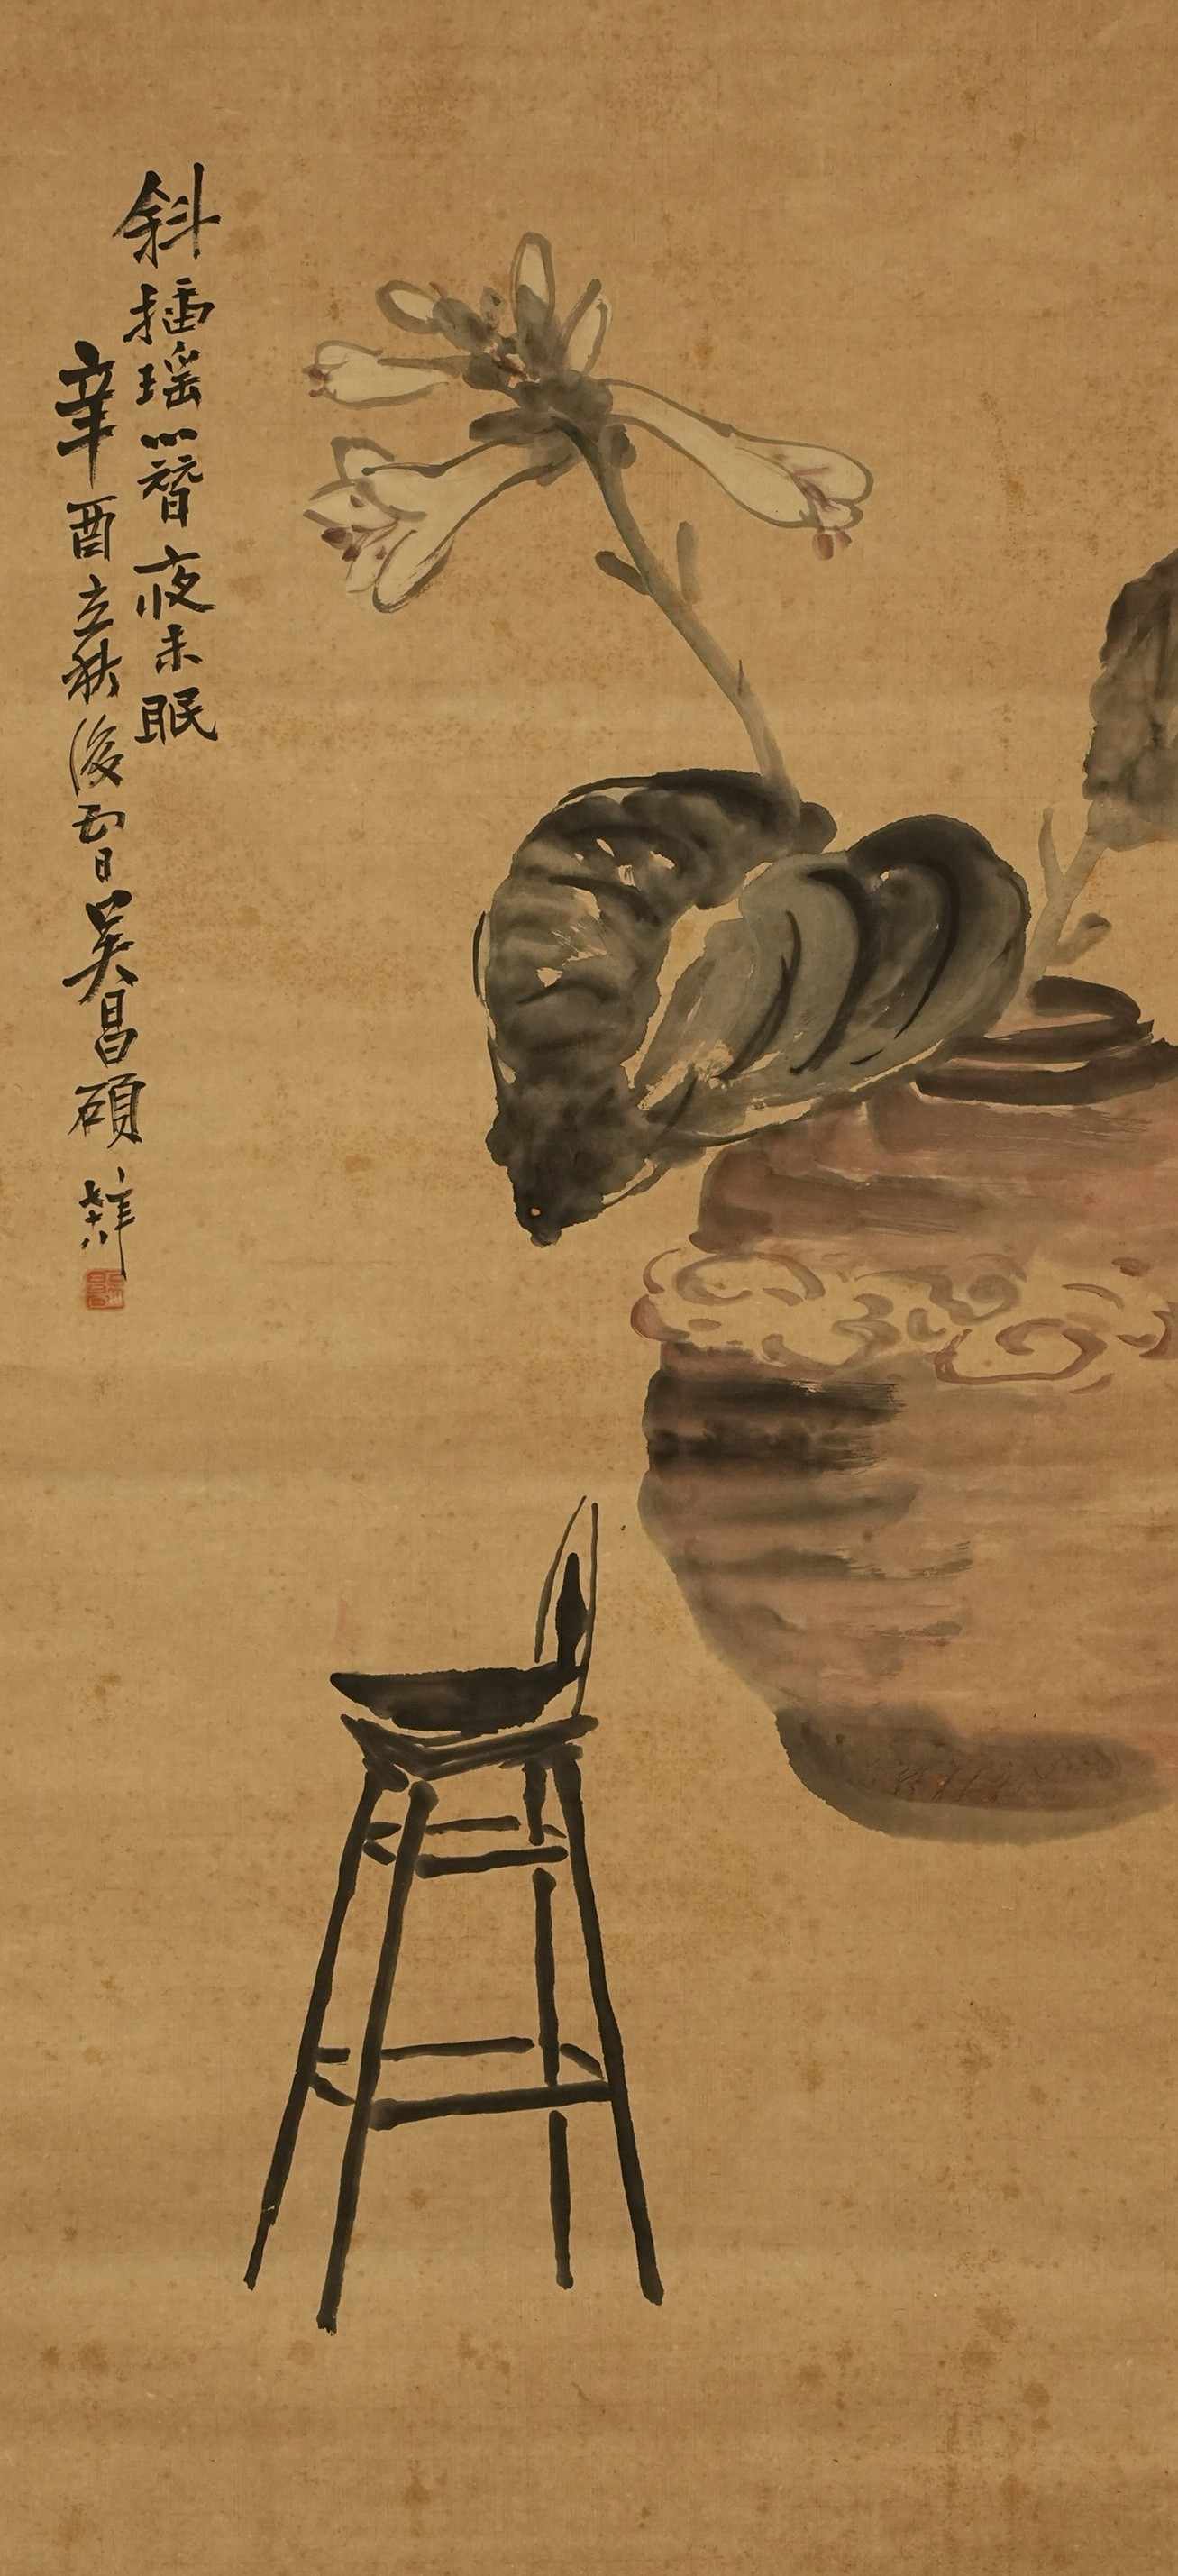 斜插瑤簪夜未眠
辛酉立秋後五日吳昌碩年七十八